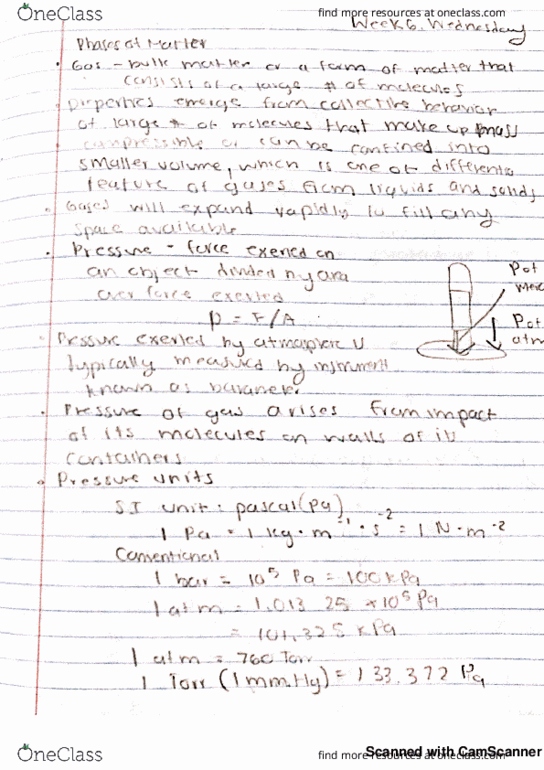 OneClass
find more resources at oneclass.com
Week 6, Wednesday
Phases of Matter
• Gas - bulk matter or a form of matter that
consists of a large # of molecules
• Properties emerge from collective behavior
of large # of molecules that make up mass
compressible or can be confined into
smaller volume, which is one of
feature of gases from liquids and solids
• Gases will expand rapidly to fill any
space available
• Pressure - force exerted on
an object divided by area
over force exerted
P = F/A
• Pressure exerted by atmosphere is
typically measured by instrument
known as barometer
• Pressure of gas arises from impact
of its molecules on walls of its
containers
• Pressure units
SI unit: pascal (Pa)
1 Pa = 1 kg · m⁻¹ · s⁻² = 1 N · m⁻²
Conventional
1 bar = 10⁵ Pa = 100 kPa
1 atm = 1.013 25 × 10⁵ Pa
= 101.325 kPa
1 atm = 760 Torr
1 Torr (1 mm Hg) = 133.322 Pa
P of
P of
atm
OneClass
find more resources at oneclass.com
Scanned with CamScanner